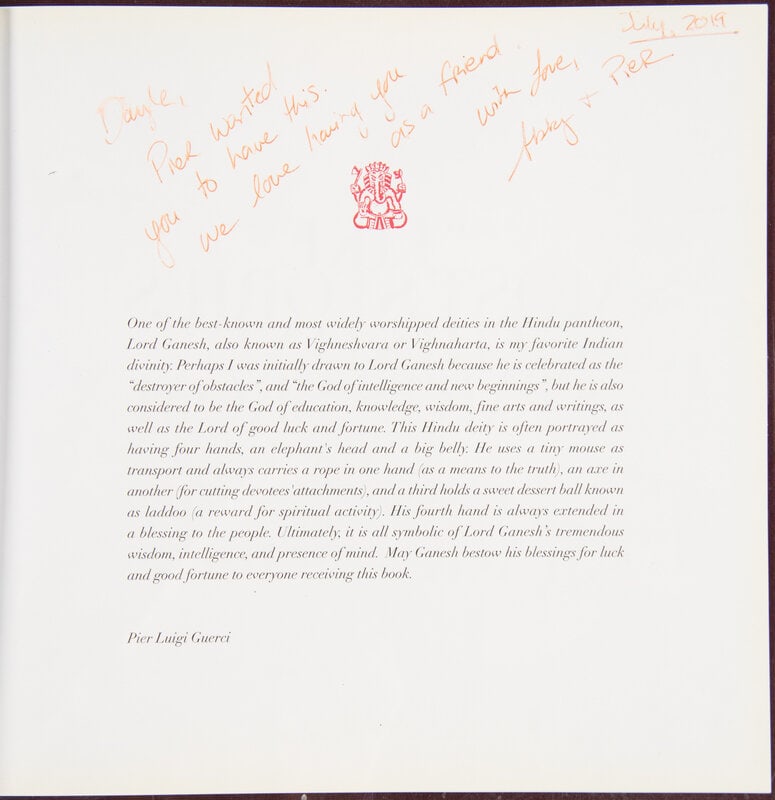 July, 2019
Dayle,
Pier wanted
you to have this.
We love having you
as a friend.
With love,
Abby + Pier
One of the best-known and most widely worshipped deities in the Hindu pantheon,
Lord Ganesh, also known as Vighneshvara or Vighnaharta, is my favorite Indian
divinity. Perhaps I was initially drawn to Lord Ganesh because he is celebrated as the
“destroyer of obstacles”, and “the God of intelligence and new beginnings”, but he is also
considered to be the God of education, knowledge, wisdom, fine arts and writings, as
well as the Lord of good luck and fortune. This Hindu deity is often portrayed as
having four hands, an elephant's head and a big belly. He uses a tiny mouse as
transport and always carries a rope in one hand (as a means to the truth), an axe in
another (for cutting devotees' attachments), and a third holds a sweet dessert ball known
as laddoo (a reward for spiritual activity). His fourth hand is always extended in
a blessing to the people. Ultimately, it is all symbolic of Lord Ganesh's tremendous
wisdom, intelligence, and presence of mind. May Ganesh bestow his blessings for luck
and good fortune to everyone receiving this book.
Pier Luigi Guerci